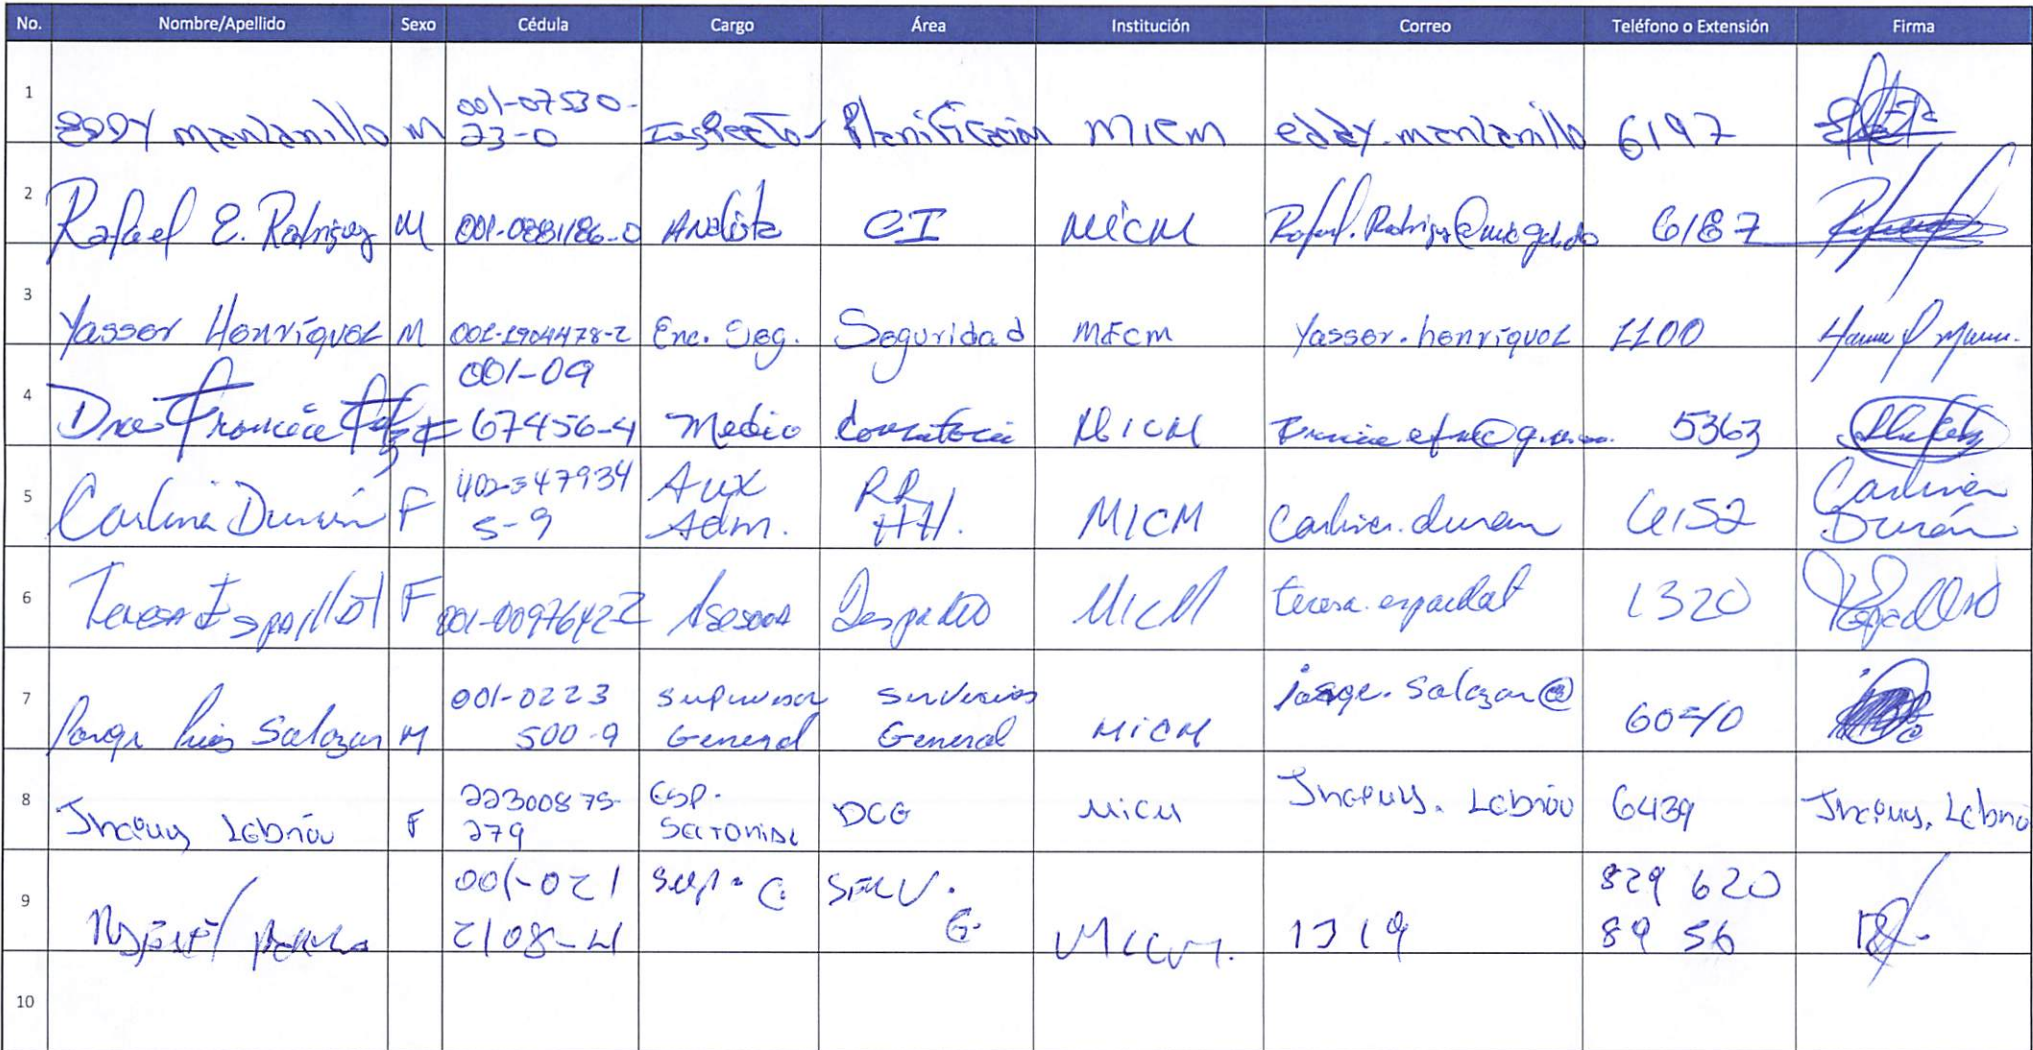 No. Nombre/Apellido Sexo Cédula Cargo Área Institución Correo Teléfono o Extensión Firma
1 EDDY manzanillo M 001-07530-23-0 Inspector Planificación MICM eddy.manzanillo 6197
2 Rafael E. Rodriguez M 001-0881186-0 Analista CI MICM 6187
3 Yasser Henríquez M 001-1904478-2 Enc. Seg. Seguridad MICM Yasser.henríquez 1100
4 Dra Francia F 001-09 67456-4 Medico MICM 5363
5 Carlina Durán F 402-347934 5-9 Aux Adm. RR HH. MICM Carlina.duran 6152 Carlina Durán
6 Teresa Espaillat F 001-0097642-2 Asesora Despacho MICM teresa.espaillat 1320
7 Jorge Luis Salazar M 001-0223 500-9 Supervisor General Servicios General MICM jorge.salazar@
8 Lebrón F 22300875-279 Esp. DCG MICM Lebrón 6439
9 001-021 2108-4 Sup. G. SERV. G. MICM. 1319 829 620 89 56
10